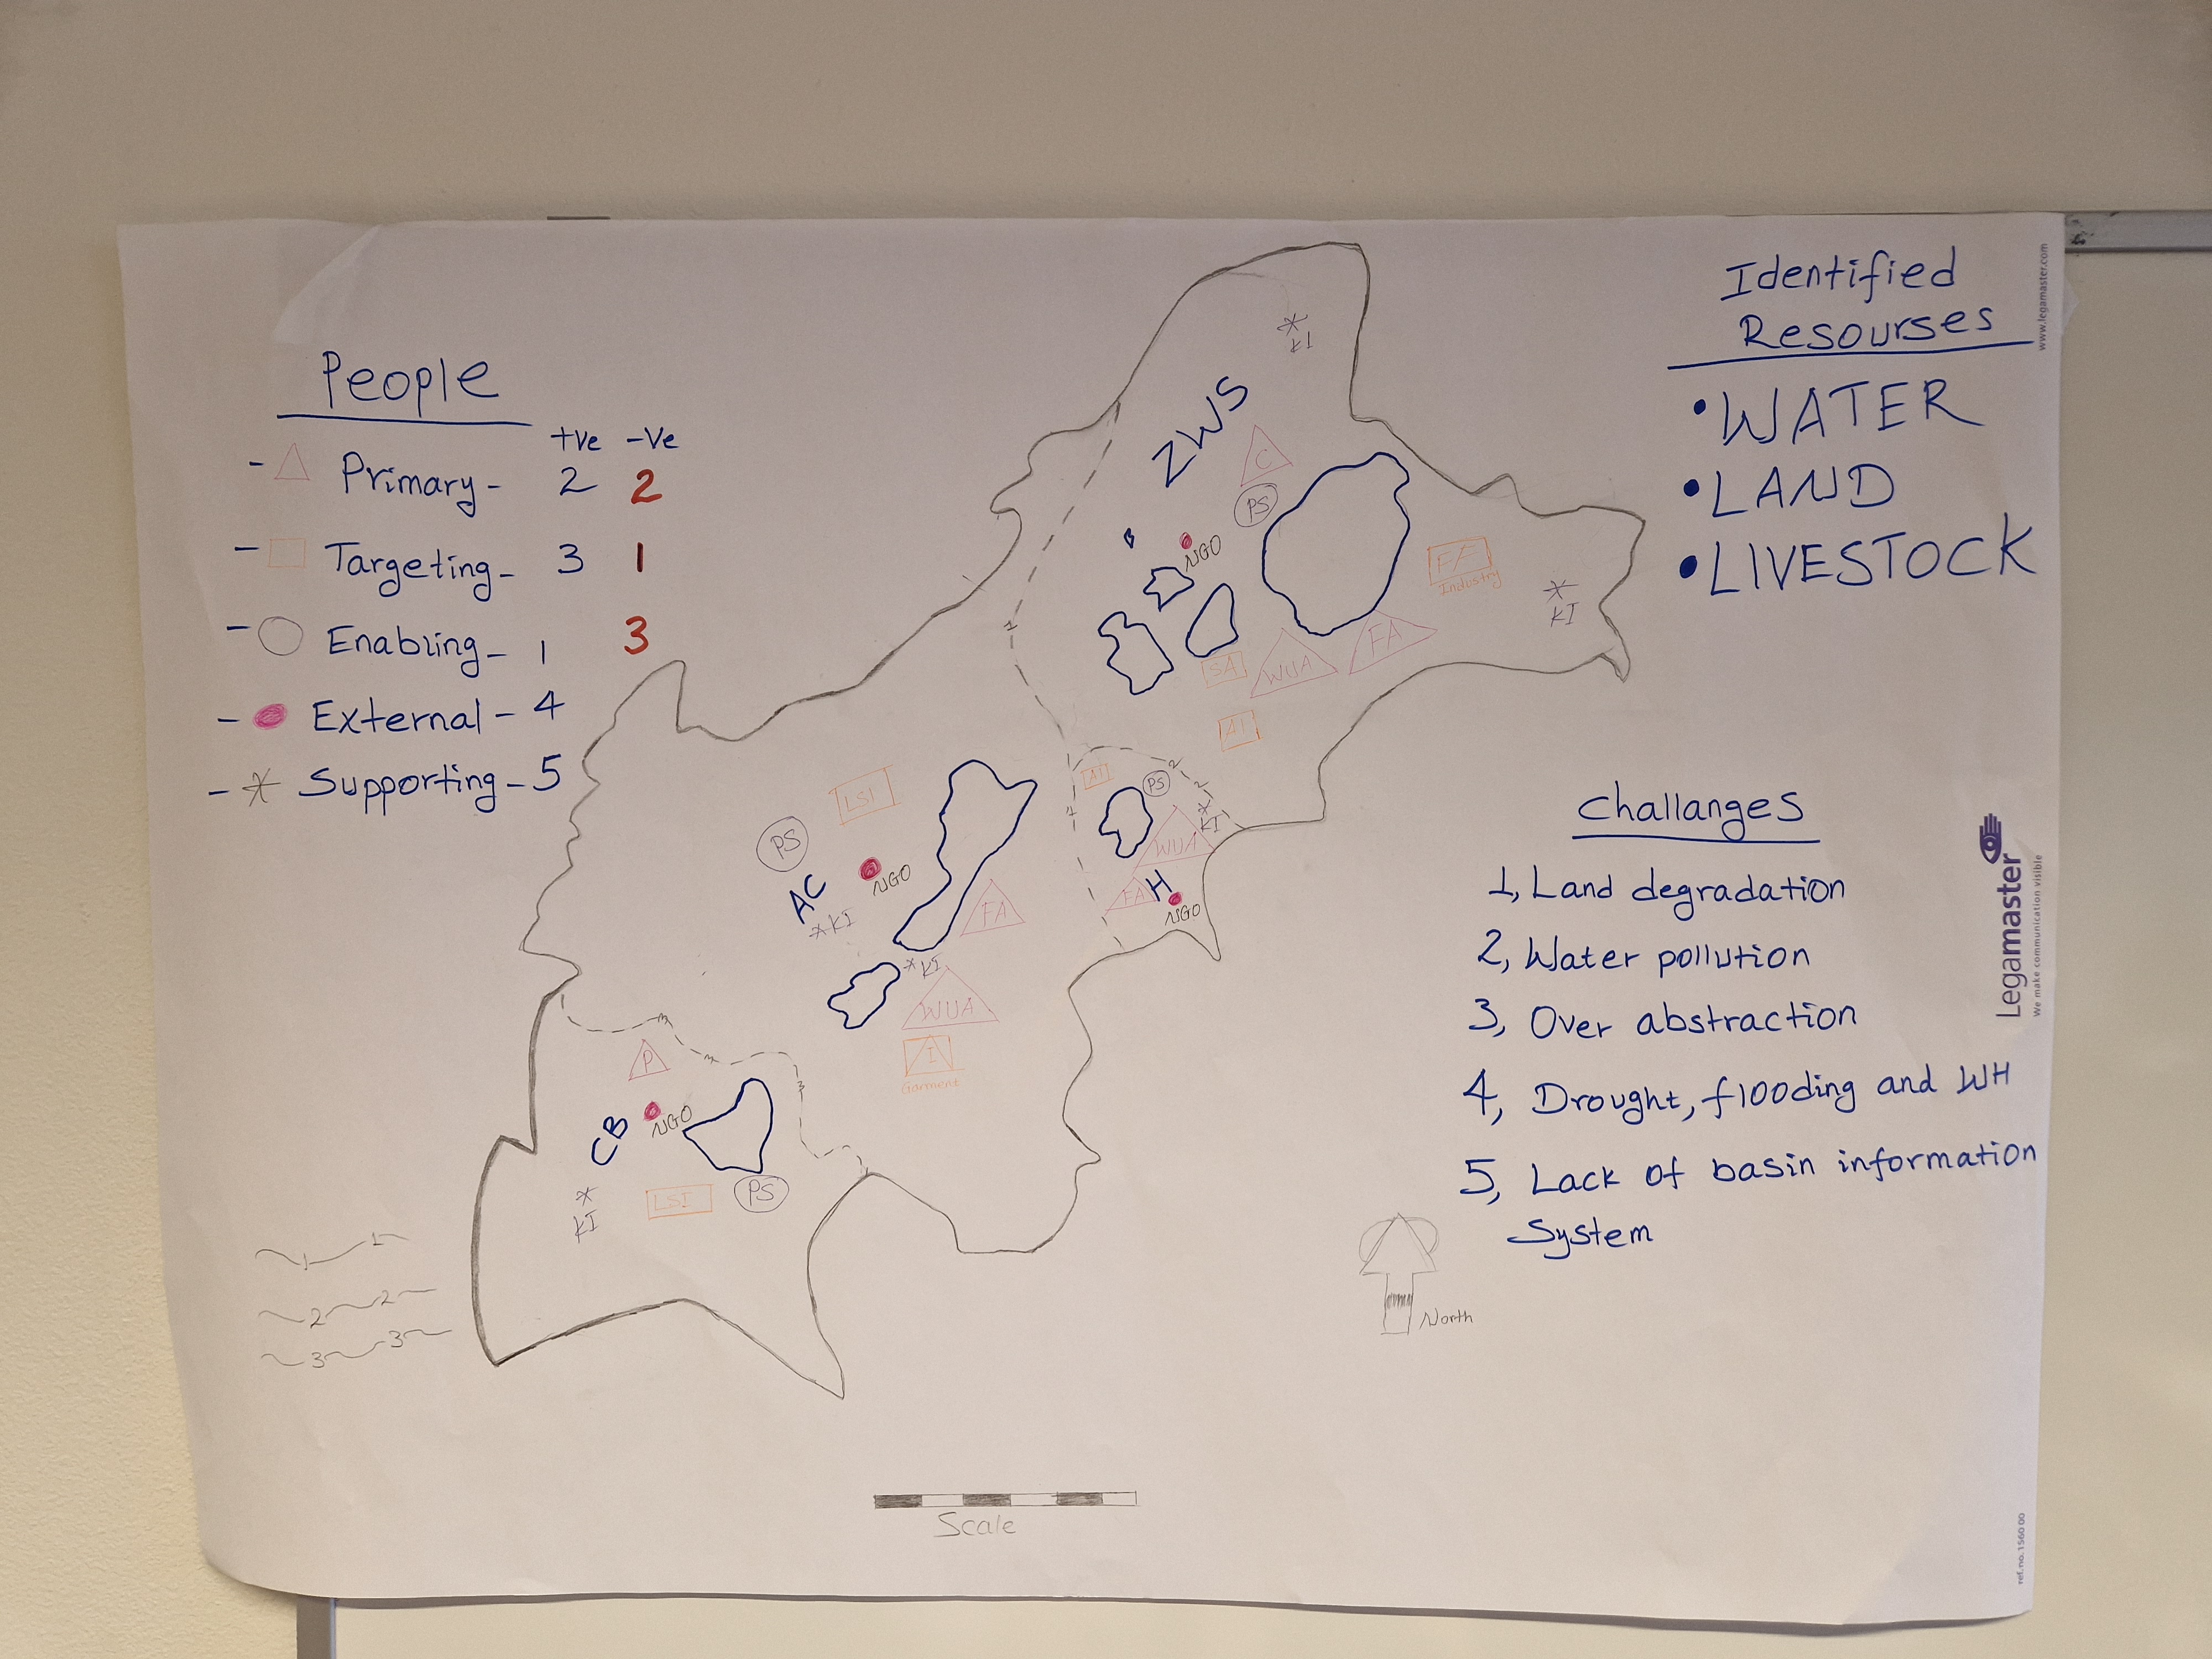 People
+ve -ve
- Primary - 2 2
- Targeting - 3 1
- Enabling - 1 3
- External - 4
- Supporting - 5
Identified
Resourses
• WATER
• LAND
• LIVESTOCK
Challanges
1, Land degradation
2, Water pollution
3, Over abstraction
4, Drought, flooding and WH
5, Lack of basin information
System
KI
ZWS
C
PS
NGO
FF
Industry
KI
SA
WUA
FA
AI
1
AI
PS
2
2
KI
1
WUA
FA
H
NGO
LSI
PS
NGO
AC
KI
FA
KI
WUA
I
Garment
3
3
3
P
NGO
CB
LSI
PS
KI
1 1
2 2
3 3
North
Scale
www.legamaster.com
Legamaster
We make communication visible
ref. no. 1560 00